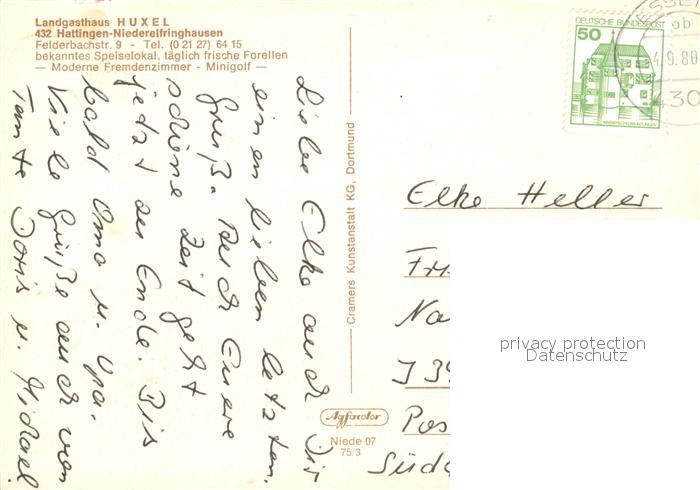 Landgasthaus HUXEL
432 Hattingen-Niederelfringhausen
Felderbachstr. 9 - Tel. (0 21 27) 64 15
bekanntes Speiselokal, täglich frische Forellen
— Moderne Fremdenzimmer - Minigolf —
DEUTSCHE BUNDESPOST
50
WASSERSCHLOSS INZLINGEN
ESSEN
ob
4.9.80
430
Liebe Elke auch Dir
einen lieben letzten
Gruß. Auch Eure
schöne Zeit geht
jetzt zu Ende. Bis
bald Oma u. Opa.
Viele Grüße auch von
Tante Doris u. Michael.
Cramers Kunstanstalt KG, Dortmund
Agfacolor
Niede 07
75/3
Elke Heller
Na
I 39
Pos
Süd
privacy protection
Datenschutz